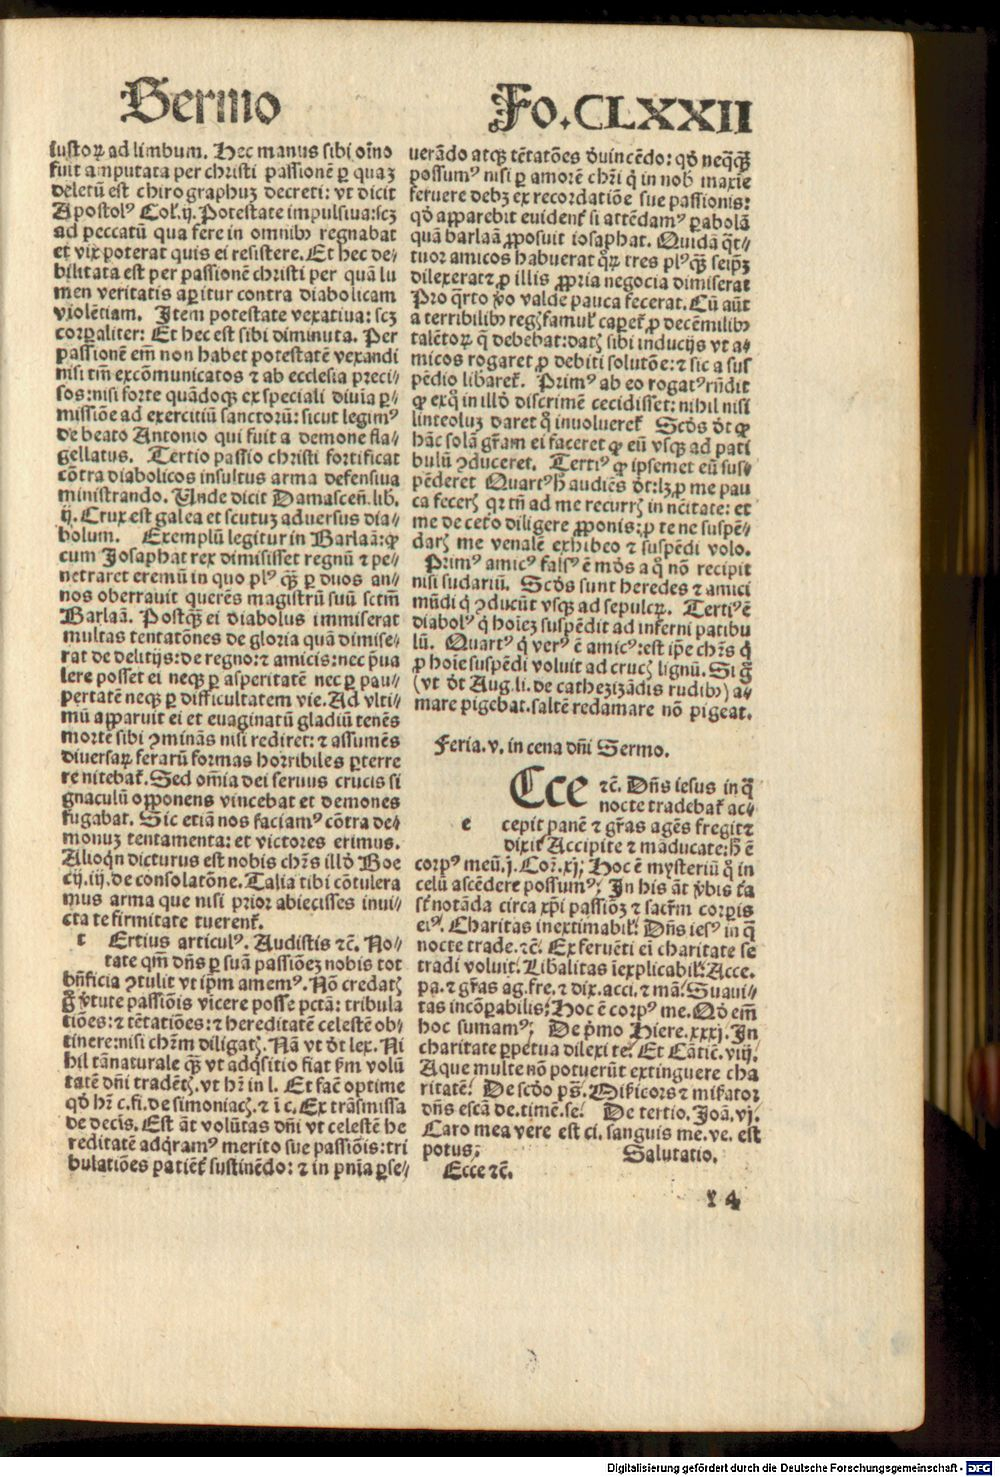 Sermo
Fo. CLXXII
iustoꝝ ad limbum. Hec manus sibi oīno
fuit amputata per christi passionē ꝑ quaꝫ
deletū est chirographuꝫ decreti: vt dicit
Apostolꝰ Col. ij. Potestate impulsiua: scꝫ
ad peccatū qua fere in omnibꝰ regnabat
et vix poterat quis ei resistere. Et hec de⸗
bilitata est per passionē christi per quā lu
men veritatis aꝑitur contra diabolicam
violētiam. Item potestate vexatiua: scꝫ
corꝑaliter: Et hec est sibi diminuta. Per
passionē em̄ non habet potestatē vexandi
nisi tm̄ excōmunicatos ⁊ ab ecclesia preci⸗
sos: nisi forte quādoqꝫ ex speciali diuīa ꝑ⸗
missiōe ad exercitiū sanctorū: sicut legimꝰ
de beato Antonio qui fuit a demone fla⸗
gellatus. Tertio passio christi fortificat
cōtra diabolicos insultus arma defensiua
ministrando. Unde dicit Damascen̄. lib.
ij. Crux est galea et scutuꝫ aduersus dia⸗
bolum. Exemplū legitur in Barlaā: ꝙ
cum Josaphat rex dimisisset regnū ⁊ pe⸗
netraret eremū in quo plꝰ qꝫ̄ ꝑ duos an⸗
nos oberrauit querēs magistrū suū sctm̄
Barlaā. Postqꝫ̄ ei diabolus immiserat
multas tentatōnes de gloria quā dimise⸗
rat de delitijs: de regno: ⁊ amicis: nec p̄ua
lere posset ei neqꝫ ꝑ asperitatē nec ꝑ pau⸗
pertatē neqꝫ ꝑ difficultatem vie. Ad vlti⸗
mū apparuit ei et euaginatū gladiū tenēs
mortē sibi ꝯminās nisi rediret: ⁊ assumēs
diuersaꝝ ferarū formas horribiles ꝑterre
re nitebať. Sed om̄ia dei seruus crucis si
gnaculū opponens vincebat et demones
fugabat. Sic etiā nos faciamꝰ cōtra de⸗
monuꝫ tentamenta: et victores erimus.
Alioqͥn dicturus est nobis chr̄s illd̄ Boe
cij. iij. de consolatōne. Talia tibi cōtulera
mus arma que nisi prior abiecisses inui⸗
cta te firmitate tuerenť.
t Ertius articulꝰ. Audistis ⁊c̄. No⸗
tate qm̄ dn̄s ꝑ suā passiōeꝫ nobis tot
bn̄ficia ꝯtulit vt ip̄m amemꝰ. Nō credatꝭ
ꝗ v̄tute passiōis vicere posse pctā: tribula
tiōes: ⁊ tētatiōes: ⁊ hereditatē celestē ob⸗
tinere: nisi chr̄m diligatꝭ. Nā vt d̄t lex. Ni
hil tā naturale qꝫ̄ vt adqͥsitio fiat ẜm volū
tatē dn̄i tradētꝭ. vt hr̄ in l. Et facē optime
qd̄ hr̄ c. fi. de simoniacꝭ. ⁊ ī c. Ex trāsmissa
de decis. Est āt volūtas dn̄i vt celestē he
reditatē adqͥramꝰ merito sue passiōis: tri
bulatiōes patiēť sustinēdo: ⁊ in pn̄ia ꝑse⸗
uerādo atqꝫ tētatōes d̄uincēdo: qd̄ neqꝫ̄qꝫ̄
possumꝰ nisi ꝑ amorē chr̄i qͥ in nob̄ maxīe
feruere debꝫ ex recordatiōe sue passionis:
qd̄ apparebit euidenť si attēdamꝰ ꝑabolā
quā barlaā ꝓposuit iosaphat. Quidā q̄t⸗
tuor amicos habuerat qͣꝝ tres plꝰ qꝫ̄ seip̄ꝫ
dilexerat ⁊ ꝓ illis ꝓpria negocia dimiserat
Pro qͣrto v̄o valde pauca fecerat. Cū aūt
a terribilibꝰ regꝭ famul̄ capeť ꝓ decē milibꝰ
talētoꝝ qͣ debebat: datꝭ sibi inducijs vt a⸗
micos rogaret ꝓ debiti solutōe: ⁊ sic a sus
pēdio libareť. Primꝰ ab eo rogatꝰ rn̄dit
ꝙ exqͦ in illd̄ discrimē cecidisset: nihil nisi
linteoluꝫ daret qͦ inuoluereť. Scd̄s d̄t ꝙ
hāc solā gr̄am ei faceret ꝙ eū vsqꝫ ad pati
bulū ꝯduceret. Tertiꝰ ꝙ ipsemet eū sus⸗
pēderet Quartꝰ h̄ audiēs d̄t: lꝫ ꝓ me pau
ca fecerꝭ qꝛ tn̄ ad me recurrꝭ in nc̄itate: et
me de cet̄o diligere ꝓponis: ꝓ te ne suspē⸗
darꝭ me venalē exhibeo ⁊ suspēdi volo.
Primꝰ amicꝰ falsꝰ ē mūdꝰ a qͦ nō recipit
nisi sudariū. Scd̄s sunt heredes ⁊ amici
mūdi qͥ ꝯducūt vsqꝫ ad sepulcꝝ. Tertiꝰ ē
diabolꝰ qͥ hoīeꝫ suspēdit ad inferni patibu
lū. Quartꝰ qͥ verꝰ ē amicꝰ: est ip̄e chr̄s qͥ
ꝓ hoīe suspēdi voluit ad crucꝭ lignū. Si ꝗ
(vt d̄t Aug. li. de cathezizādis rudibꝰ) a⸗
mare pigebat. saltē redamare nō pigeat.
Feria. v. in cena dn̄i Sermo.
e
Ecce ⁊c̄. Dn̄s iesus in qͣ
nocte tradebať ac⸗
cepit panē ⁊ gr̄as agēs fregit ⁊
dixit: Accipite ⁊ māducate: h̄ ē
corpꝰ meū. j. Cor̄. xj; Hoc ē mysteriū qͦ in
celū ascēdere possumꝰ; In his āt v̄bis ťa
sť notāda circa xp̄i passiōꝫ ⁊ sacr̄m corꝑis
eiꝰ. Charitas inextimabil̄: Dn̄s iesꝰ in qͣ
nocte trade. ⁊c̄. Ex feruēti ei charitate se
tradi voluit. Libalitas īexplicabil̄: Acce.
pa. ⁊ gr̄as ag. fre. ⁊ dix. acci. ⁊ mā. Suaui⸗
tas incōꝑabilis; Hoc ē corpꝰ me. Qd̄ em̄
hoc sumamꝰ; De pͥmo Hiere. xxxj. In
charitate ꝑpetua dilexi te. Et Cātic̄. viij.
Aque multe nō potuerūt extinguere cha
ritatē. De scd̄o ps̄. Miſ̄icors ⁊ miſ̄ator
dn̄s escā de. timē. se. De tertio. Joā. vj.
Caro mea vere est ci. sanguis me. ve. est
potus;
Salutatio.
Ecce ⁊c̄.
y 4
Digitalisierung gefördert durch die Deutsche Forschungsgemeinschaft - DFG